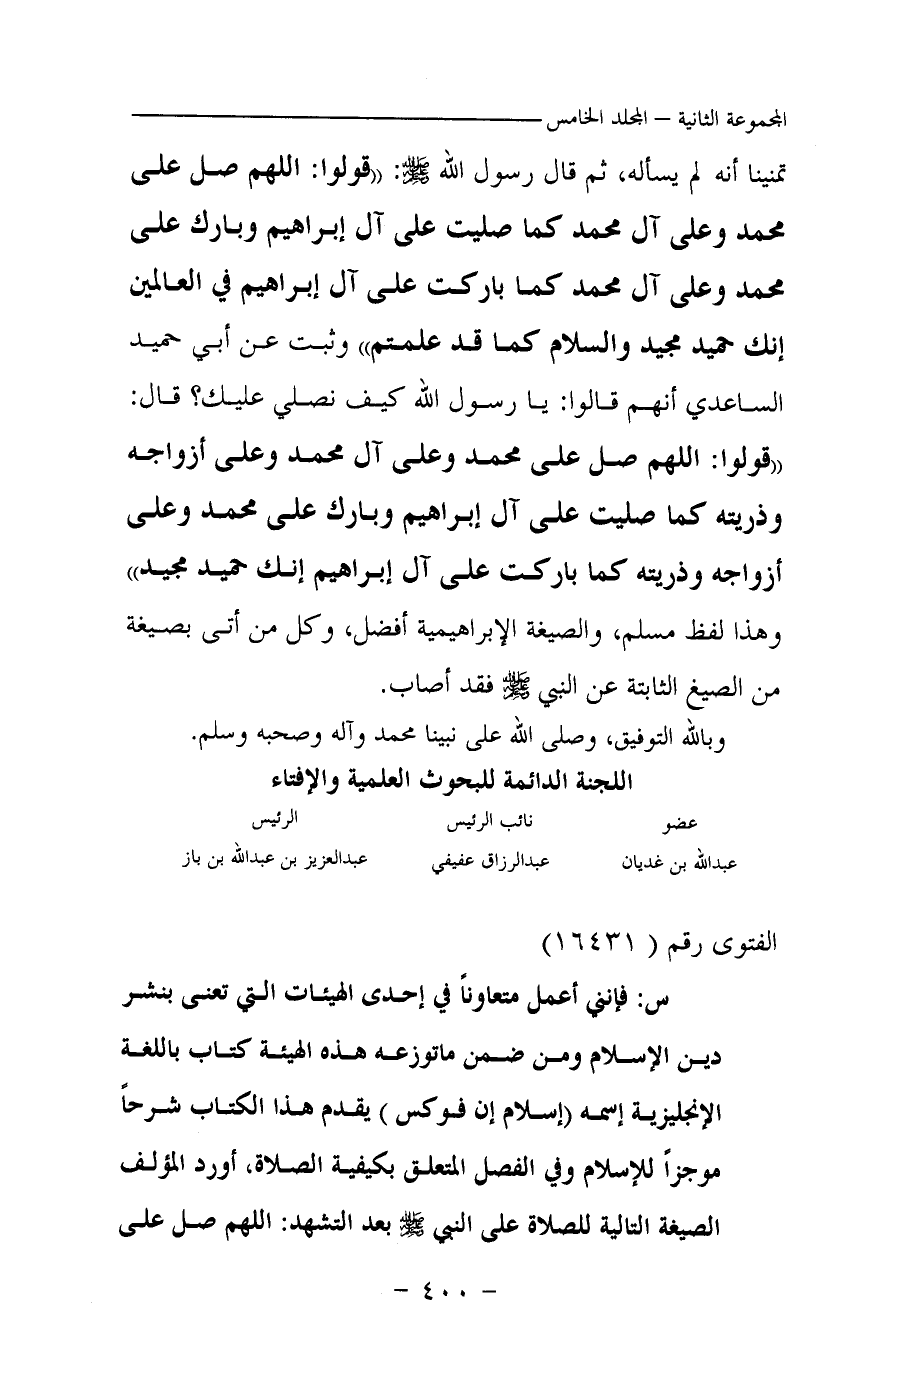 المجموعة الثانية – المجلد الخامس
تمنينا أنه لم يسأله، ثم قال رسول الله ﷺ: «قولوا: اللهم صل على
محمد وعلى آل محمد كما صليت على آل إبراهيم وبارك على
محمد وعلى آل محمد كما باركت على آل إبراهيم في العالمين
إنك حميد مجيد والسلام كما قد علمتم» وثبت عن أبي حميد
الساعدي أنهم قالوا: يا رسول الله كيف نصلي عليك؟ قال:
«قولوا: اللهم صل على محمد وعلى آل محمد وعلى أزواجه
وذريته كما صليت على آل إبراهيم وبارك على محمد وعلى
أزواجه وذريته كما باركت على آل إبراهيم إنك حميد مجيد»
وهذا لفظ مسلم، والصيغة الإبراهيمية أفضل، وكل من أتى بصيغة
من الصيغ الثابتة عن النبي ﷺ فقد أصاب.
وبالله التوفيق، وصلى الله على نبينا محمد وآله وصحبه وسلم.
اللجنة الدائمة للبحوث العلمية والإفتاء
عضو نائب الرئيس الرئيس
عبدالله بن غديان عبدالرزاق عفيفي عبدالعزيز بن عبدالله بن باز
الفتوى رقم ( ١٦٤٣١)
س: فإنني أعمل متعاوناً في إحدى الهيئات التي تعنى بنشر
دين الإسلام ومن ضمن ماتوزعه هذه الهيئة كتاب باللغة
الإنجليزية إسمه (إسلام إن فوكس ) يقدم هذا الكتاب شرحاً
موجزاً للإسلام وفي الفصل المتعلق بكيفية الصلاة، أورد المؤلف
الصيغة التالية للصلاة على النبي ﷺ بعد التشهد: اللهم صل على
– ٤٠٠ –